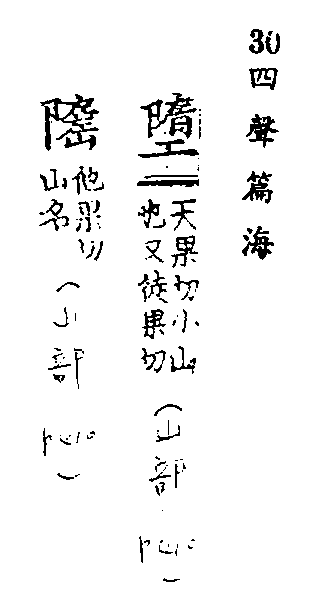 30四聲篇海
天果切小山
也又徒果切
(山部
他果切
山名
(山部